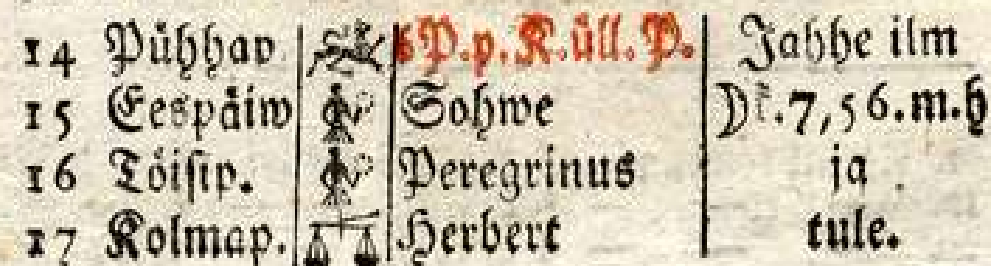 14 Pühhap. 6 P. p. K. üll. P. Jahhe ilm
15 Eespäiw Sohwe .7,56.m.h
16 Töisip. Peregrinus ja
17 Kolmap. Herbert tule.